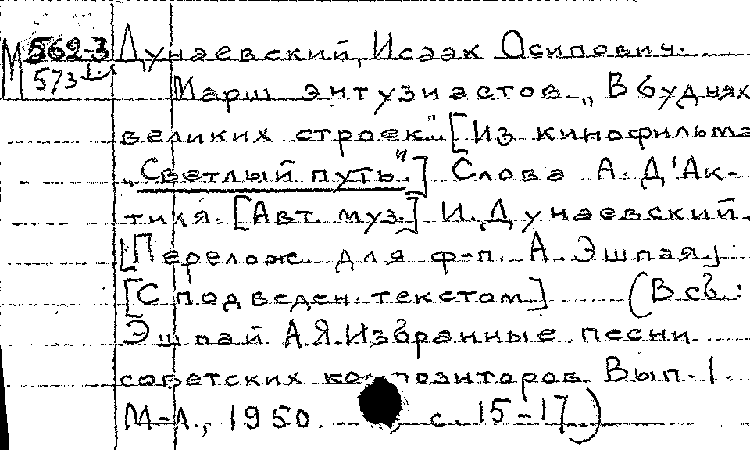 М 562-3 Дунаевский, Исаак Осипович.
573 Марш энтузиастов. "В буднях
великих строек". [Из кинофильма
"Светлый путь".] Слова А. Д'Ак-
тиля. [Авт. муз.] И. Дунаевский.
[Перелож. для ф-п. А. Эшпая]
[С подведен. текстом] (В сб.:
Эшпай А.Я. Избранные песни
советских композиторов. Вып. 1.
М-Л., 1950. с. 15-17)